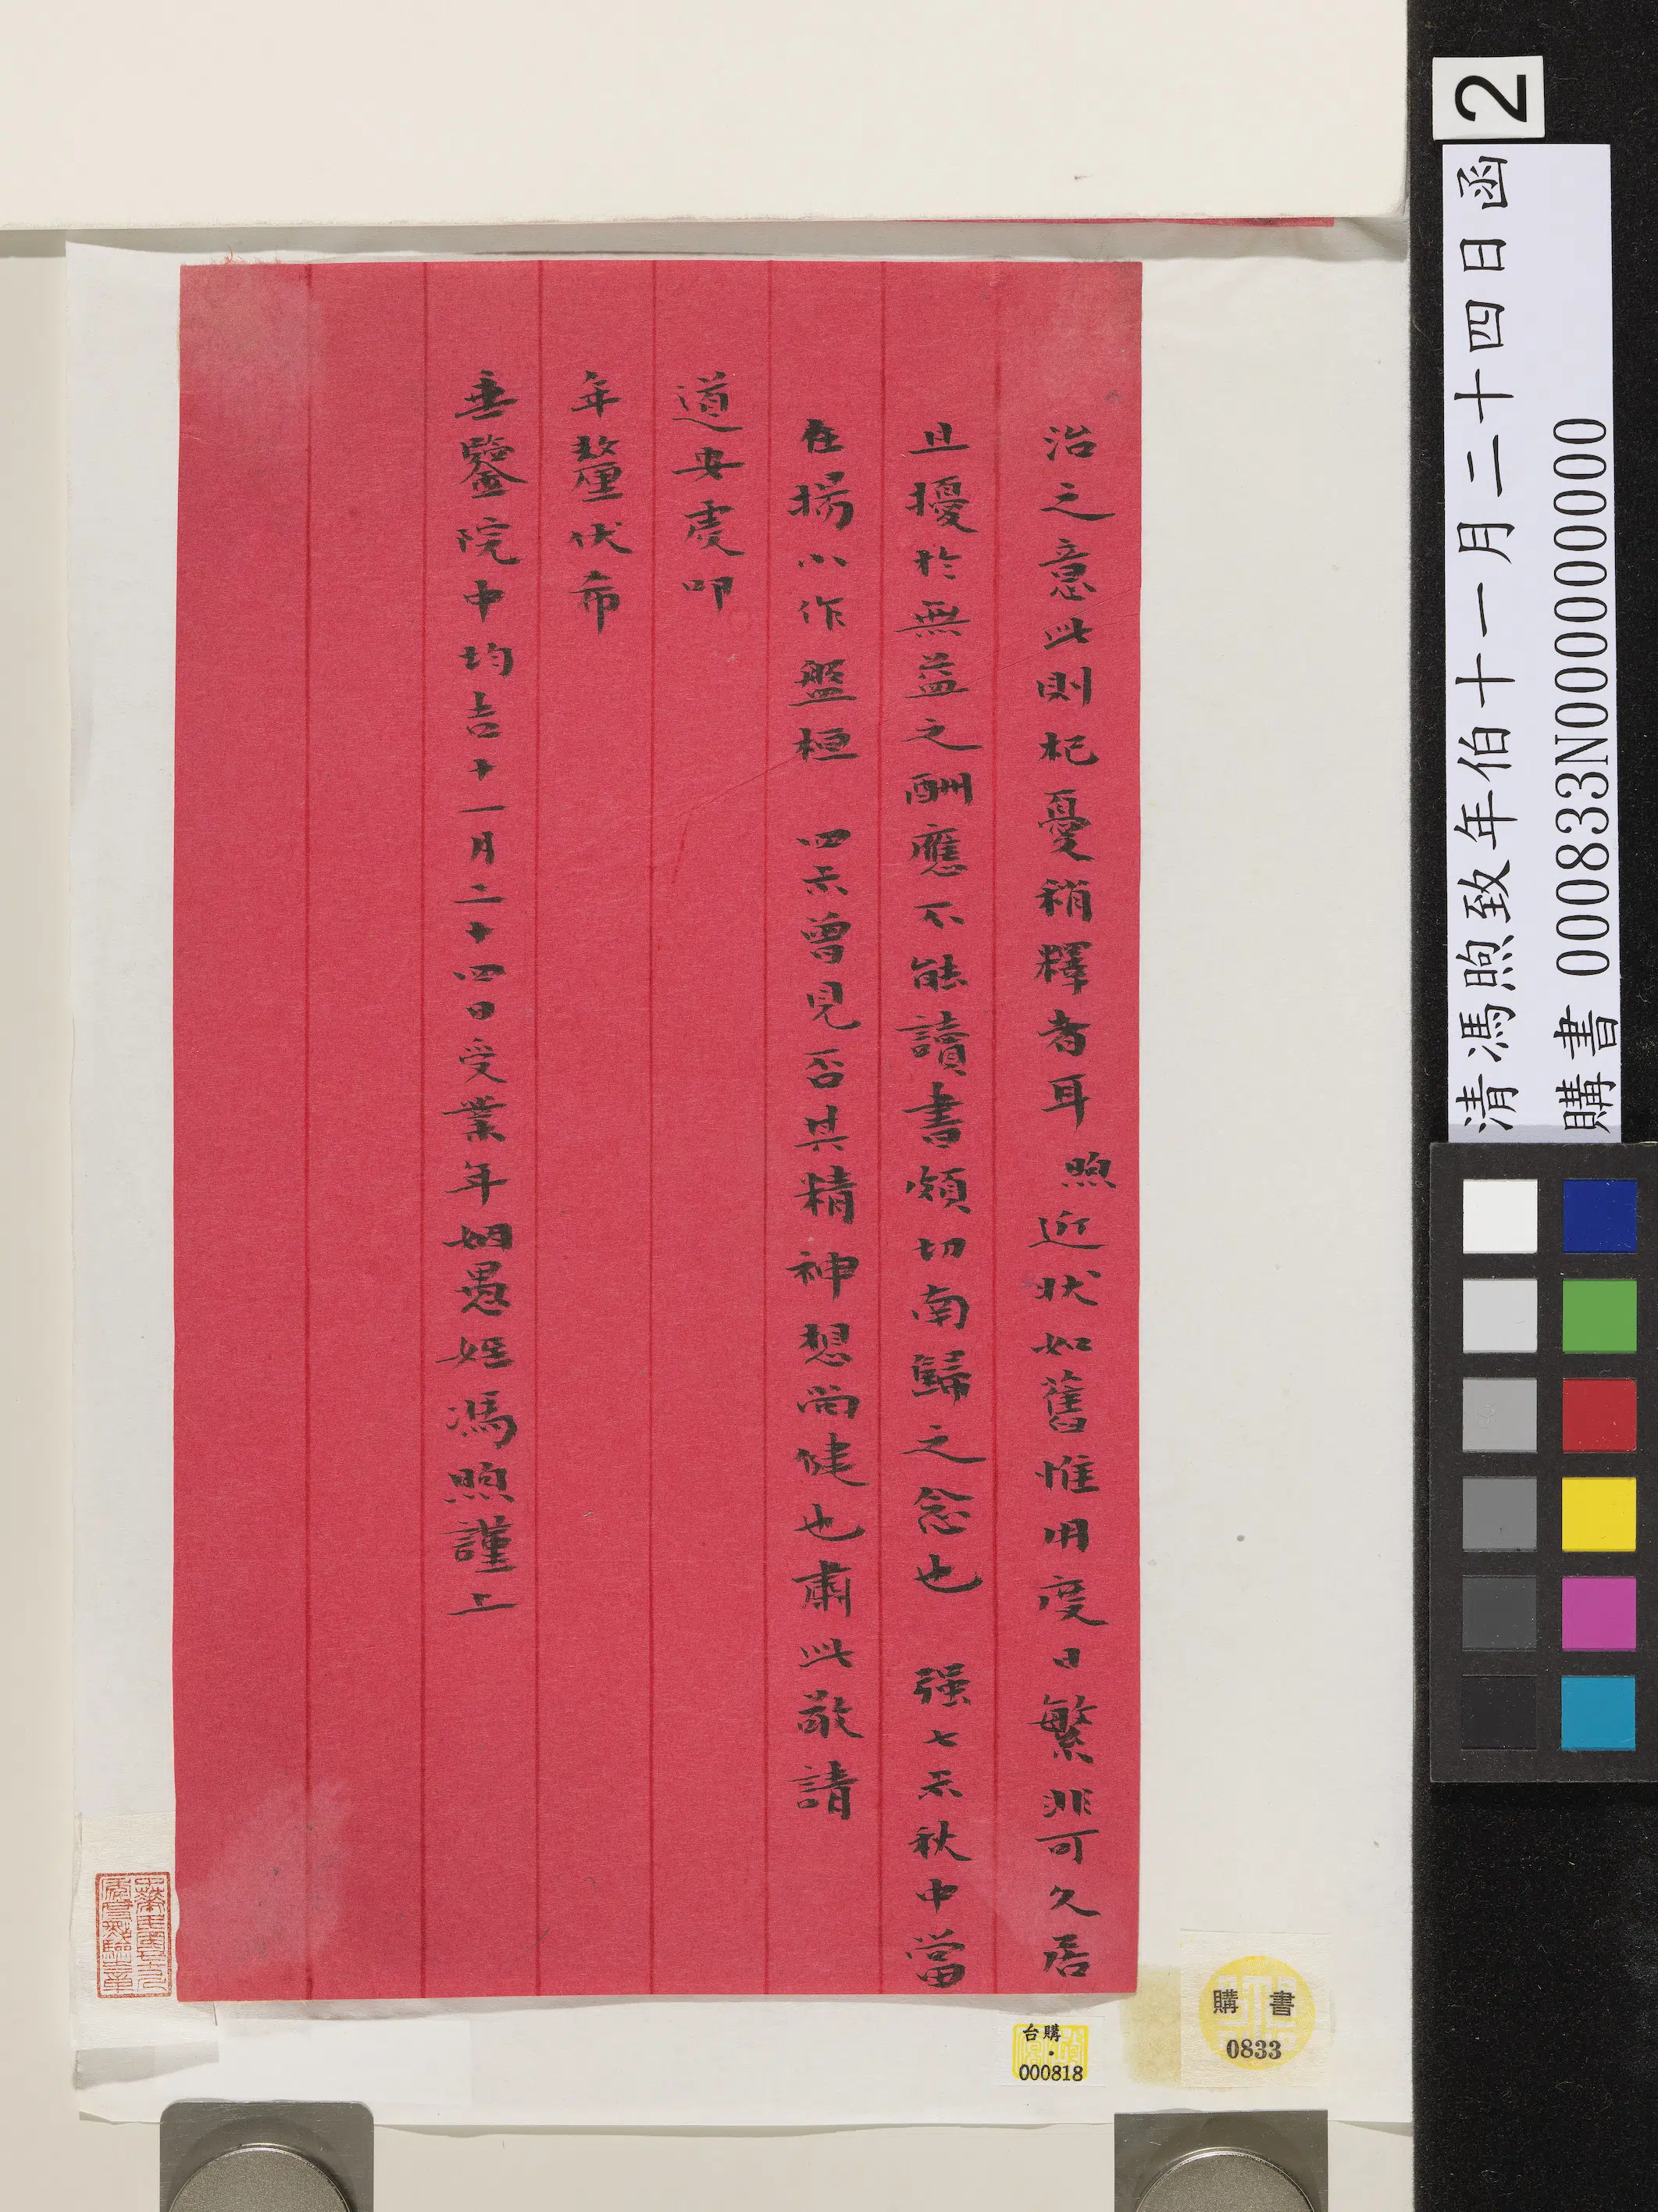 治之意此則杞憂稍釋者耳煦近狀如舊惟用度日繁非可久居
且擾於無益之酬應不能讀書頗切南歸之念也 强七示秋中當
在揚小作盤桓 四示曾見否其精神想尚健也肅此敬請
道安虔叩
年釐伏希
垂鑒院中均吉十一月二十四日受業年姻愚姪馮煦謹上
2
清馮煦致年伯十一月二十四日函
購書 000833N000000000
購書
0833
台購
000818